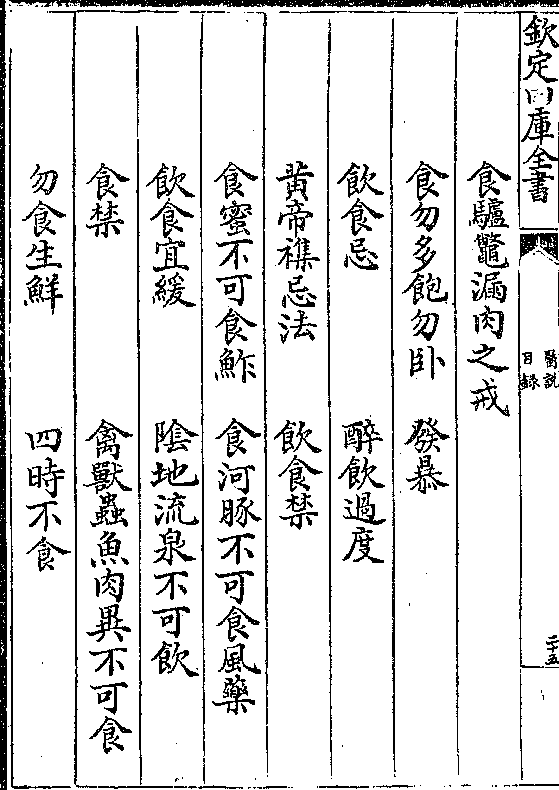 欽定四庫全書
醫說
目録
二十五
食驢鼈漏肉之戒
食勿多飽勿卧 發暴
飲食忌 醉飲過度
黄帝襍忌法 飲食禁
食蜜不可食鮓 食河豚不可食風藥
飲食宜緩 陰地流泉不可飲
食禁 禽獸蟲魚肉異不可食
勿食生鮮 四時不食